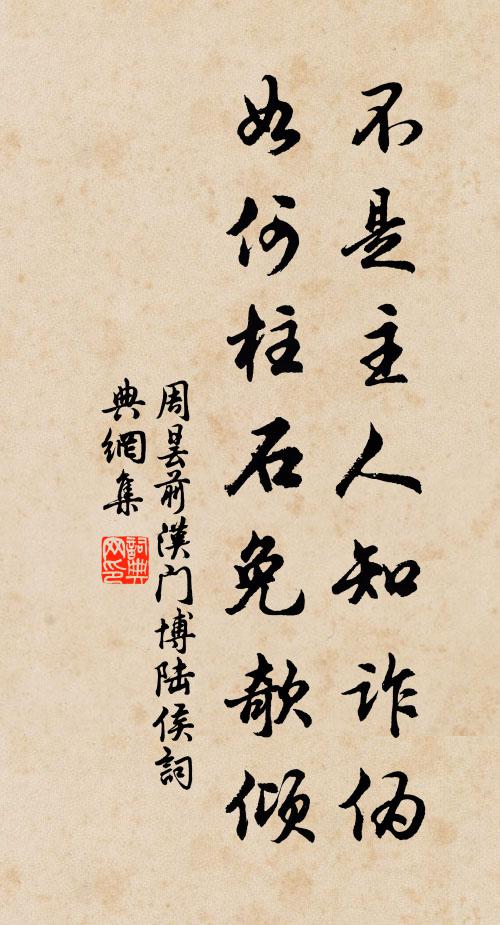 不是主人知诈伪
如何柱石免欹倾
周昙前汉门博陆侯词
典網集
詞典網印